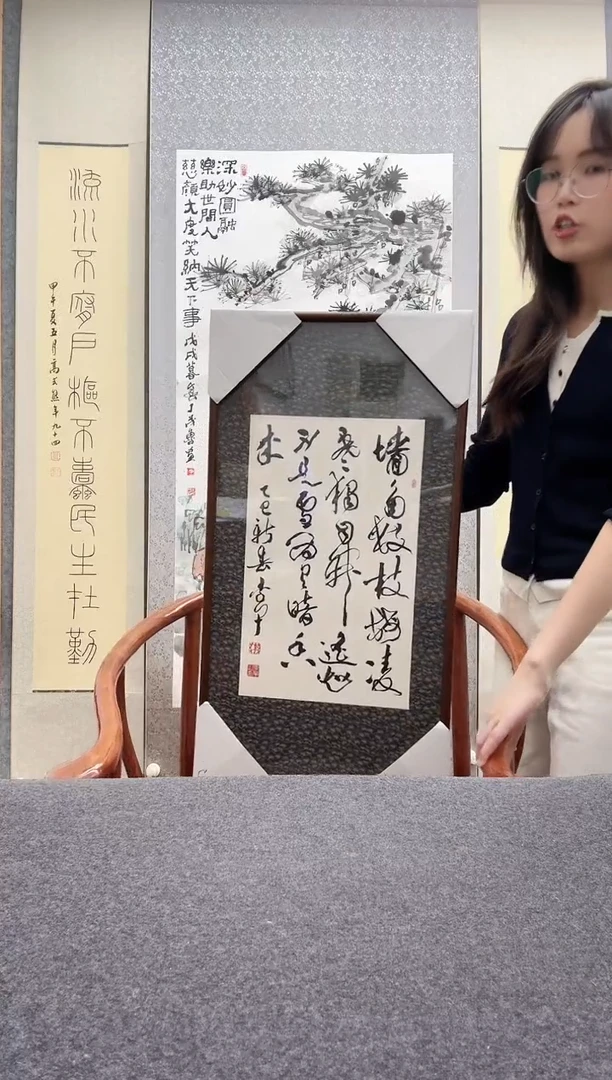 深妙圓融
樂助世間人
慈顏大度笑納天下事 戊戌暮
墙角数枝梅凌
寒独自开遥知
不是雪为有暗香
来 乙巳新春
流水不腐戶樞不蠹民生在勤
甲午夏五月高式熊年九十四